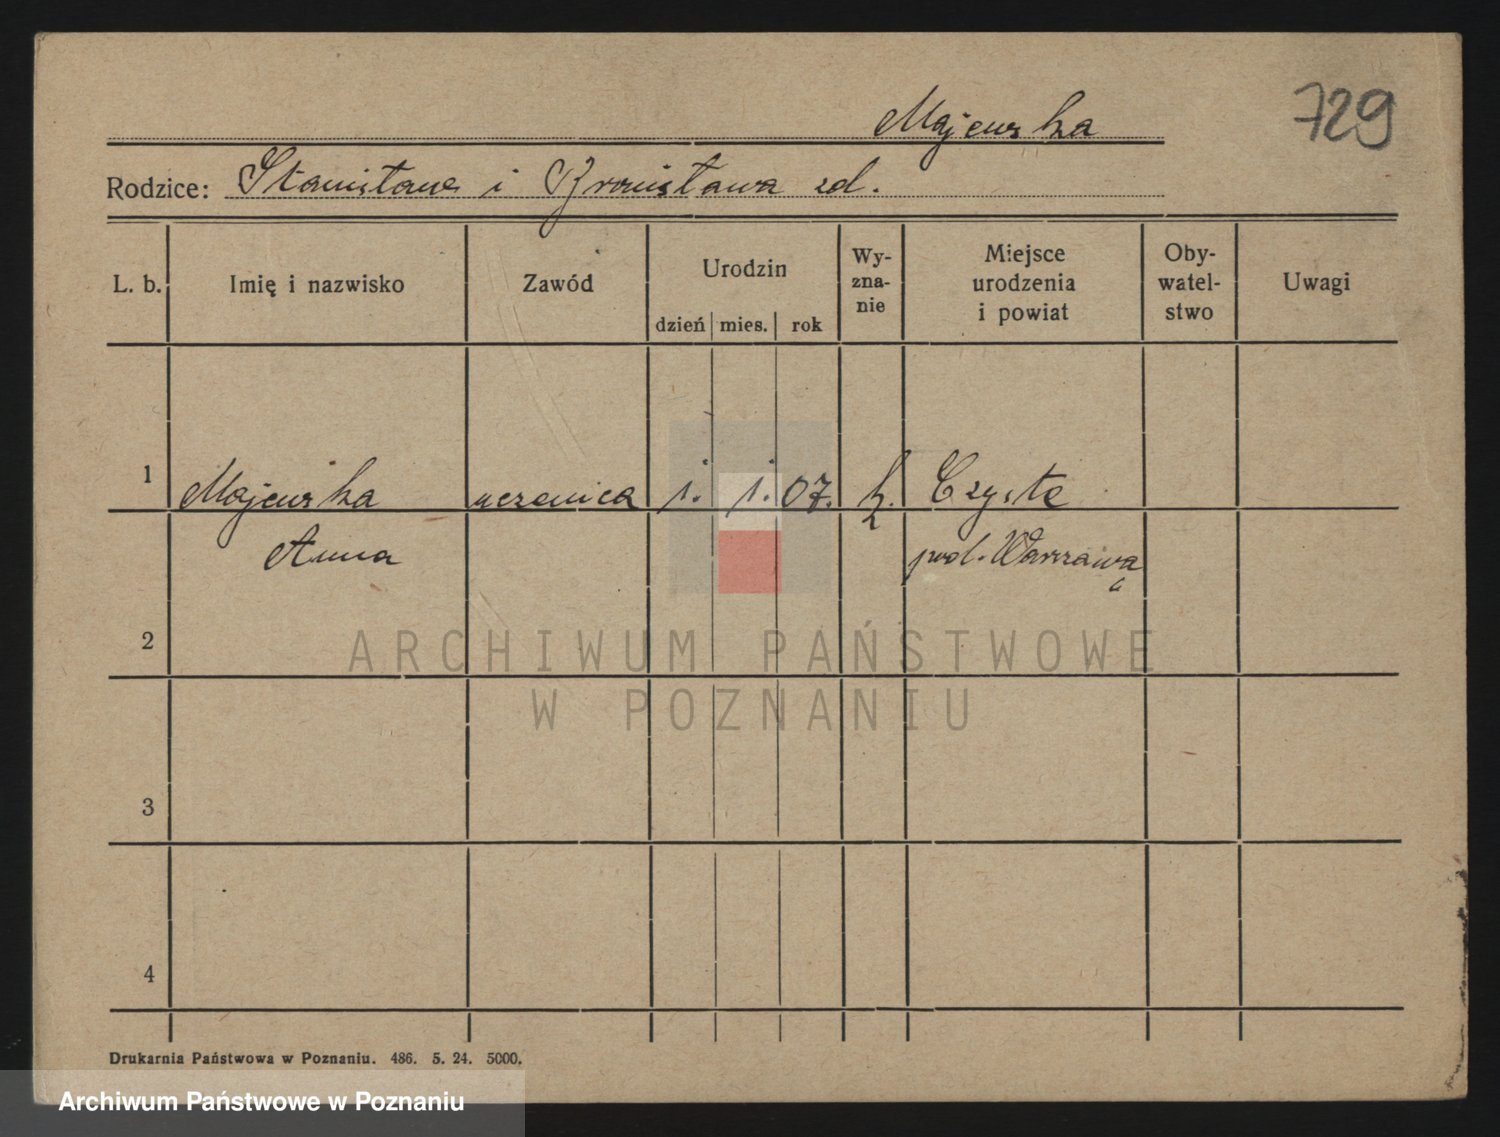 Majewska
729
Rodzice: Stanisława i Bronisława zd.
L. b. Imię i nazwisko Zawód Urodzin dzień mies. rok Wy-zna-nie Miejsce urodzenia i powiat Oby-watel-stwo Uwagi
1 Majewska uczenica 1. 1. 07. k. Czyste
Anna pod. Warszawą
2
ARCHIWUM PAŃSTWOWE
W POZNANIU
3
4
Drukarnia Państwowa w Poznaniu. 486. 5. 24. 5000.
Archiwum Państwowe w Poznaniu